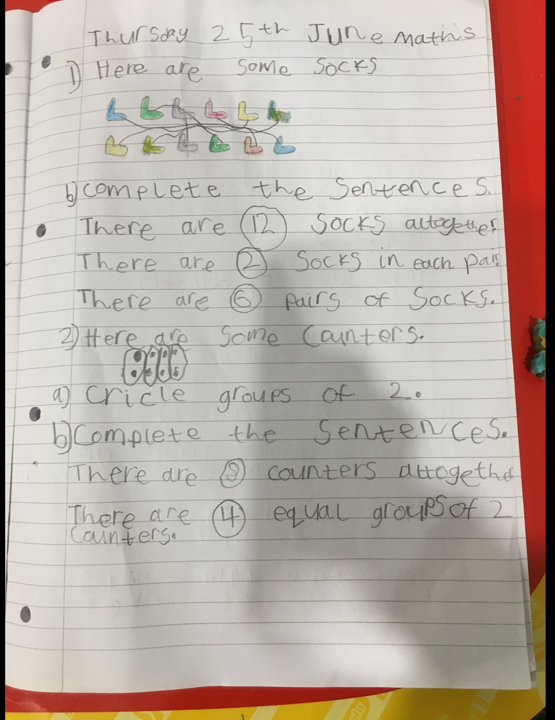 Thursday 25th June Maths
1) Here are some socks
b) complete the Sentences.
There are 12 socks altogether
There are 2 socks in each pair
There are 6 pairs of socks.
2) Here are some Counters.
a) Cricle groups of 2.
b) Complete the Sentences.
There are 8 counters attogethe
There are 4 equal groups of 2
Counters.